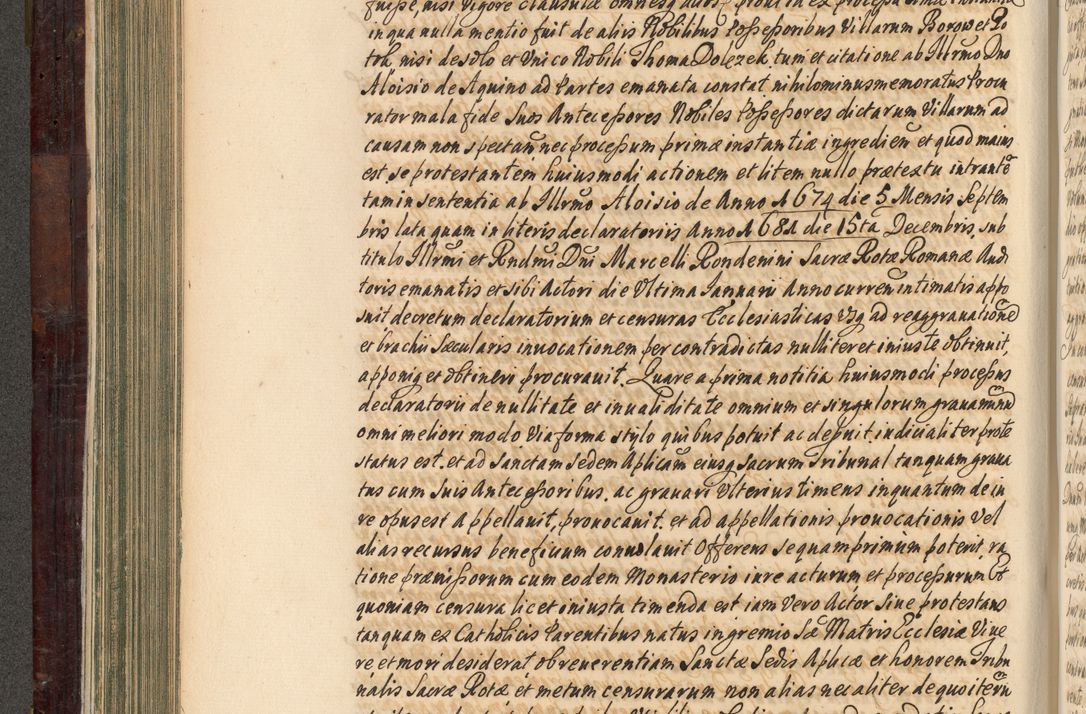 fuisse, nisi vigore clausulæ omnesq
in qua nulla mentio fuit de aliis Nobilibus Possessoribus Villarum Borow et Po
tok nisi de solo et Vnico Nobili Thoma Dolezek tum et citatione ab Illrmo Dno
Aloisio de Aquino ad Partes emanata constat nihilominus memoratus Procu
rator mala fide Suos Antecessores Nobiles Possessores dictarum Villarum ad
causam non spectan, nec processum primæ instantiæ ingredien et quod maius
est se protestantem huiusmodi actionem et litem nullo prætextu intrantē
tam in sententia ab Illrmo Aloisio de Anno 1674 die 5 Mensis Septem
bris lata quam in literis declaratoriis Anno 1681 die 15ta Decembris, sub
titulo Illrmi et Rndmi Dni Marcelli Rondenini Sacræ Rotæ Romanæ Audi
toris emanatis et sibi Actori die Vltima Januarii Anno curren intimatis appo
suit decretum declaratorium et censuras Ecclesiasticas usq ad reaggrauationē
et brachii sæcularis inuocationem per contradictas nulliter et iniuste obtinuit,
apponiq et obtineri procurauit. Quare a prima notitia huiusmodi processus
declaratorii de nullitate et inualiditate omnium et singulorum grauaminū
omni meliori modo Via forma stylo quibus potuit ac debuit iudicialiter prote
status est. et ad Sanctam Sedem Aplicam eiusq Sacrum Tribunal tanquam graua
tus cum Suis Antecessoribus. ac grauari Vlterius timens in quantum de iu
re opus est Appellauit, prouocauit. et ad appellationis prouocationis Vel
alias recursus beneficium conuolauit Offerens se quamprimum poterit, ra
tione præmissorum cum eodem Monasterio iure acturum et processurum Et
quoniam censura licet iniusta timenda est iam Vero Actor Siue protestans
tanquam ex Catholicis Parentibus natus in gremio Sæ Matris Ecclesiæ Viue
re et mori desiderat ob reuerentiam Sanctæ Sedis Aplicæ et honorem Tribu
nalis Sacræ Rotæ et metum censurarum non alias nec aliter de quo iterū